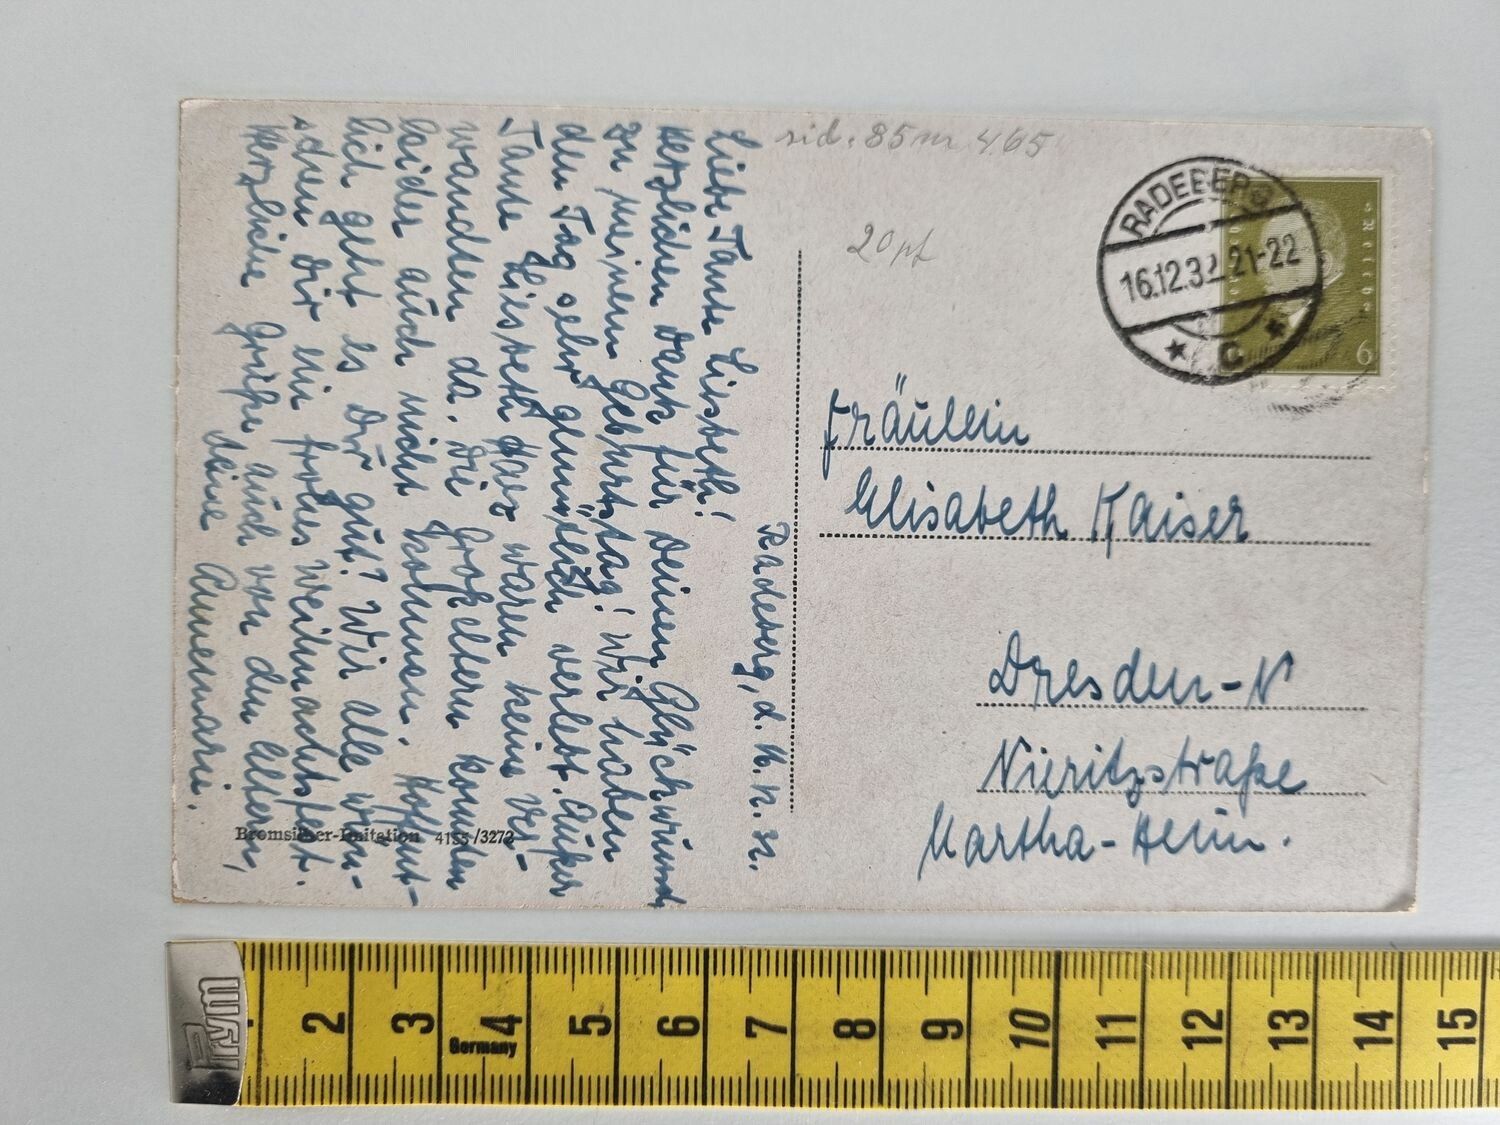 Radeberg, d.
Liebe Tante Liesbeth!
Herzlichen Dank für Deinen Glückwunsch
zu meinem Geburtstag! Wir haben
den Tag sehr gemütlich verlebt. Außer
Tante Liesbeth waren keine Ver-
wandten da. Die Großeltern konnten
leider auch nicht kommen. Hoffent-
lich geht es Dir gut? Wir alle wün-
schen Dir ein frohes Weihnachtsfest.
Herzliche Grüße auch von den Eltern,
Deine Annemarie.
Bromsilber-Imitation 4155/3272
rid. 85 m 465
20 pf
RADEBERG
16.12.32 21-22
* C *
6
Fräulein
Elisabeth Kaiser
Dresden-N
Nieritzstraße
Martha-Heim.
Prym
2 3 4 5 6 7 8 9 10 11 12 13 14 15
Germany